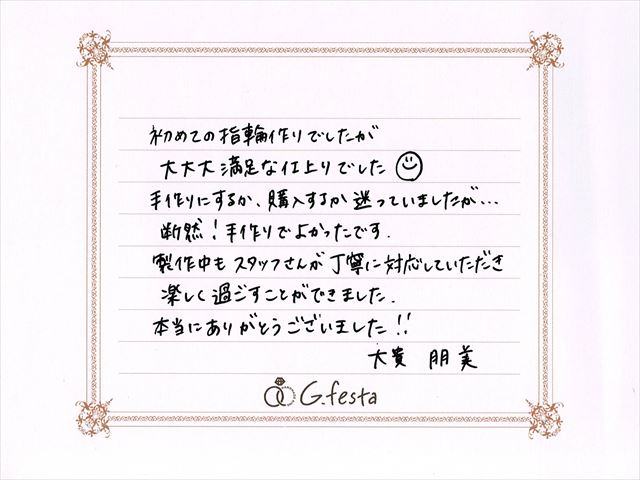 初めての指輪作りでしたが
大大大満足な仕上りでした
手作りにするか、購入するか迷っていましたが…
断然!手作りでよかったです.
製作中もスタッフさんが丁寧に対応していただき
楽しく過ごすことができました.
本当にありがとうございました!!
大貴 朋美
G.festa